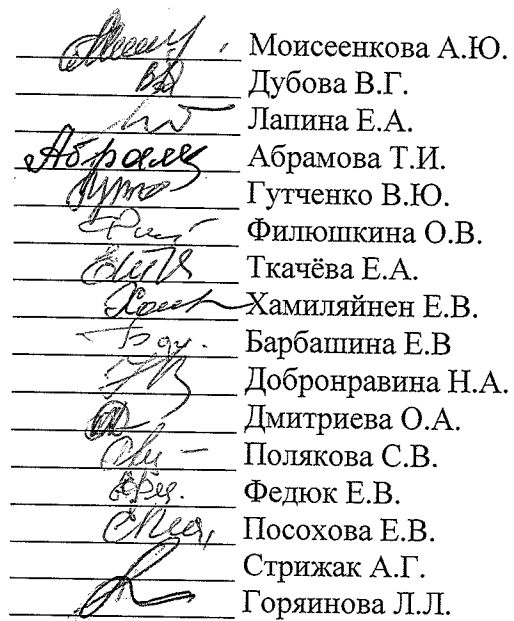 Моисеенкова А.Ю.
Дубова В.Г.
Лапина Е.А.
Абрамова Т.И.
Гутченко В.Ю.
Филюшкина О.В.
Ткачёва Е.А.
Хамиляйнен Е.В.
Барбашина Е.В
Добронравина Н.А.
Дмитриева О.А.
Полякова С.В.
Федюк Е.В.
Посохова Е.В.
Стрижак А.Г.
Горяинова Л.Л.